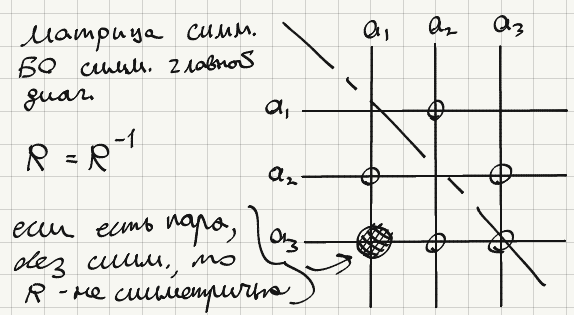 матрица симм.
БО симм. главной
диаг.
R = R⁻¹
если есть пара,
без симм., то
R - не симметрична
a₁ a₂ a₃
a₁
a₂
a₃